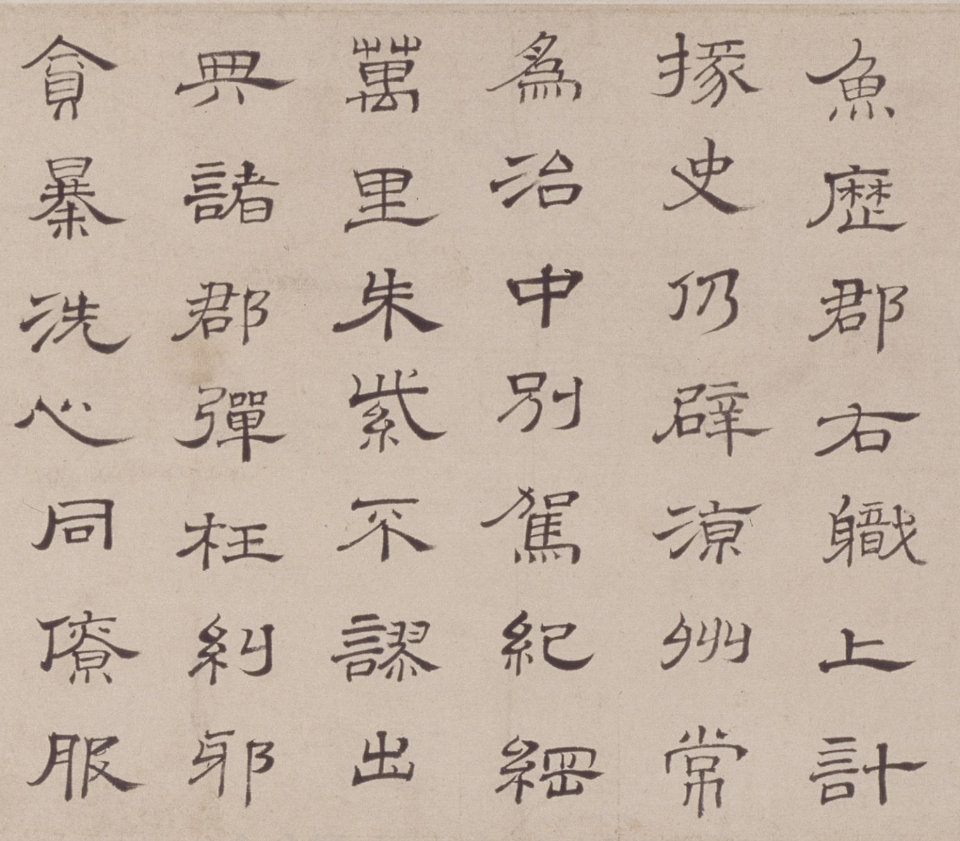 魚歷郡右職上計
掾史仍辟涼州常
爲治中別駕紀綱
萬里朱紫不謬出
典諸郡彈枉糾邪
貪暴洗心同僚服